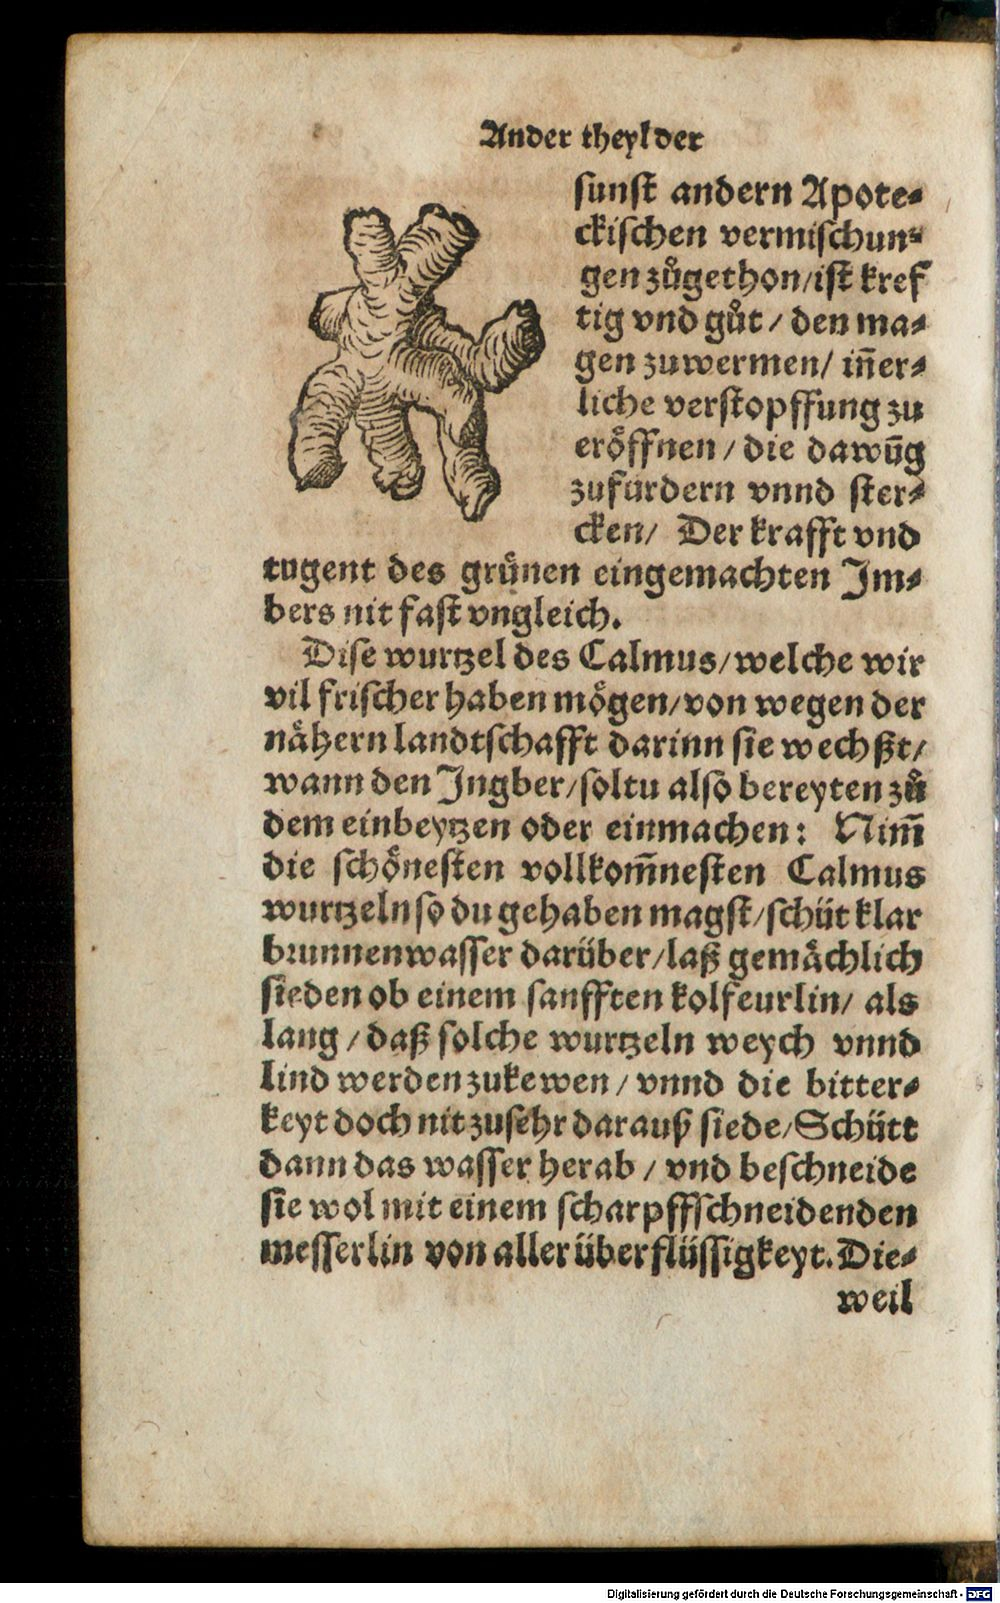 Ander theyl der
sunst andern Apote⸗
ckischen vermischun⸗
gen zůgethon/ist kref
tig vnd gůt / den ma⸗
gen zuwermen/ iñer⸗
liche verstopffung zu
eröffnen / die dawūg
zufürdern vnnd ster⸗
cken/ Der krafft vnd
tugent des grünen eingemachten Im⸗
bers nit fast vngleich.
Dise wurtzel des Calmus/welche wir
vil frischer haben mögen/von wegen der
nähern landtschafft darinn sie wechßt/
wann den Ingber/soltu also bereyten zů
dem einbeytzen oder einmachen: Nim̄
die schönesten vollkom̄nesten Calmus
wurtzeln so du gehaben magst/schüt klar
brunnenwasser darüber/laß gemächlich
sieden ob einem sanfften kolfeurlin/ als
lang / daß solche wurtzeln weych vnnd
lind werden zukewen / vnnd die bitter⸗
keyt doch nit zusehr darauß siede/Schütt
dann das wasser herab / vnd beschneide
sie wol mit einem scharpffschneidenden
messerlin von aller überflüssigkeyt. Die⸗
weil
Digitalisierung gefördert durch die Deutsche Forschungsgemeinschaft - DFG